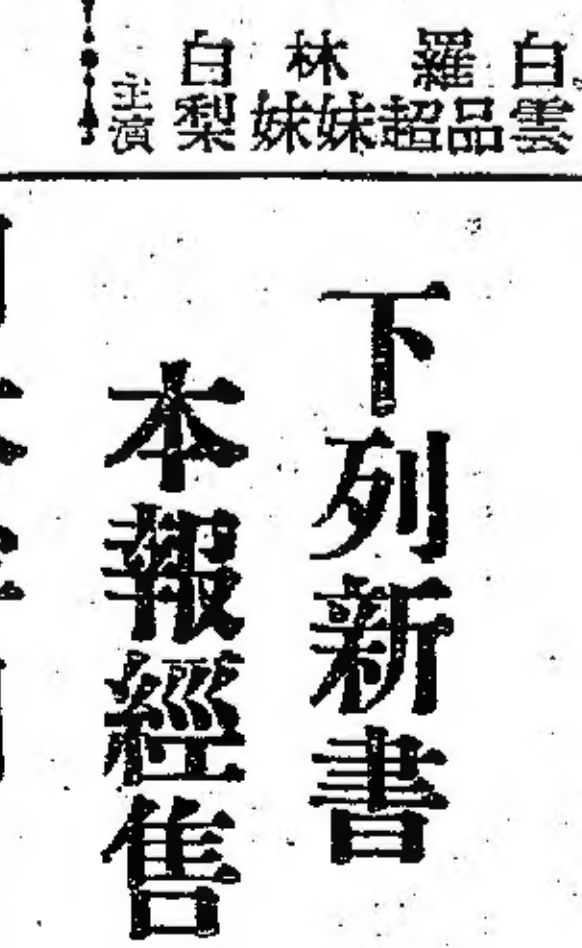 白雲
羅品超
林妹妹
白梨
主演
下列新書
本報經售